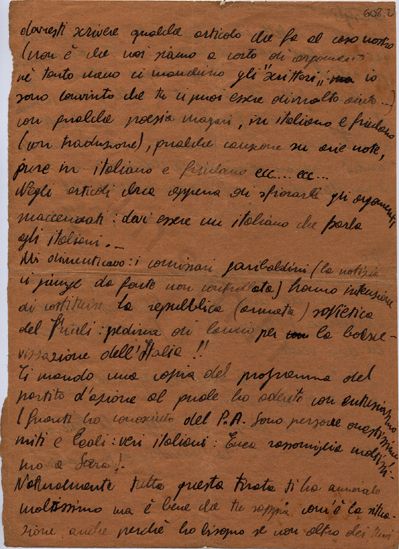 608.2
dovresti scrivere qualche articolo che fa al caso nostro
(non è che noi siamo a corto di argomenti
nè tanto meno ci manchino gli "scrittori", ma io
sono convinto che tu ci puoi essere di molto aiuto...)
con qualche poesia magari, in italiano e friulano
(con traduzione), qualche canzone su arie note,
pure in italiano e friulano ecc... ecc...
Negli articoli cerca appena di sfiorarli gli argomenti
menzionati: devi essere un italiano che parla
agli italiani.
Mi dimenticavo: i comissari garibaldini (la notizia
ci giunge da fonte non controllata) hanno intenzione
di costituire la repubblica (armata) sovietica
del Friuli: pedina di lancio per la bolsce-
vizzazione dell'Italia!!
Ti mando una copia del programma del
partito d'azione al quale ho aderito con entusiasmo
(Quanti ho conosciuto del P.A. sono persone onestissime
miti e leali: veri italiani: Enea rassomiglia moltissi-
mo a Sera)!
Naturalmente tutta questa tirata ti ha annoiato
moltissimo ma è bene che tu sappia com'è la situa-
zione anche perchè ho bisogno se non altro dei tuoi